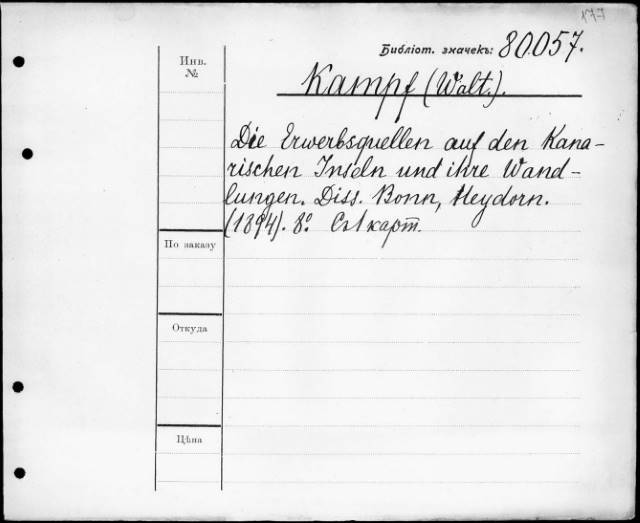 177
Библіот. значекъ: 80.057.
Инв.
№
Kampf (Walt.).
Die Erwerbsquellen auf den Kana-
rischen Inseln und ihre Wand-
lungen. Diss. Bonn, Heydorn.
(1894). 8º. Съ 1 карт.
По заказу
Откуда
Цѣна